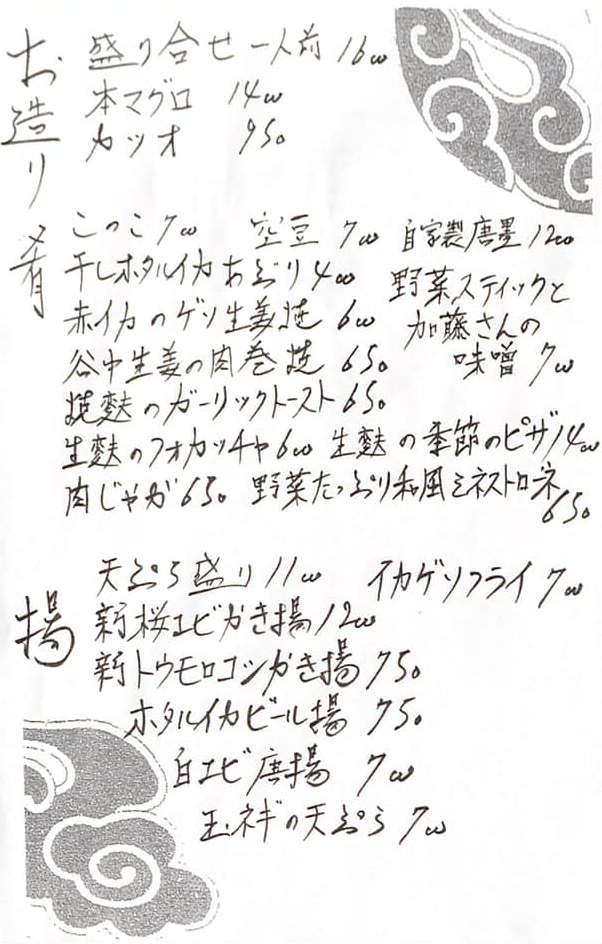 お造り
盛り合せ一人前 1600
本マグロ 1400
カツオ 950
肴
こっこ 700 空豆 700 自家製唐墨 1200
干しホタルイカあぶり 400
野菜スティックと
加藤さんの
味噌 700
赤イカのゲソ生姜焼 600
谷中生姜の肉巻焼 650
焼麩のガーリックトースト 650
生麩のフォカッチャ 600 生麩の季節のピザ 1400
肉じゃが 650 野菜たっぷり和風ミネストローネ
650
揚
天ぷら盛り 1100 イカゲソフライ 700
新桜エビかき揚 1200
新トウモロコシかき揚 750
ホタルイカビール揚 750
白エビ唐揚 700
玉ネギの天ぷら 700